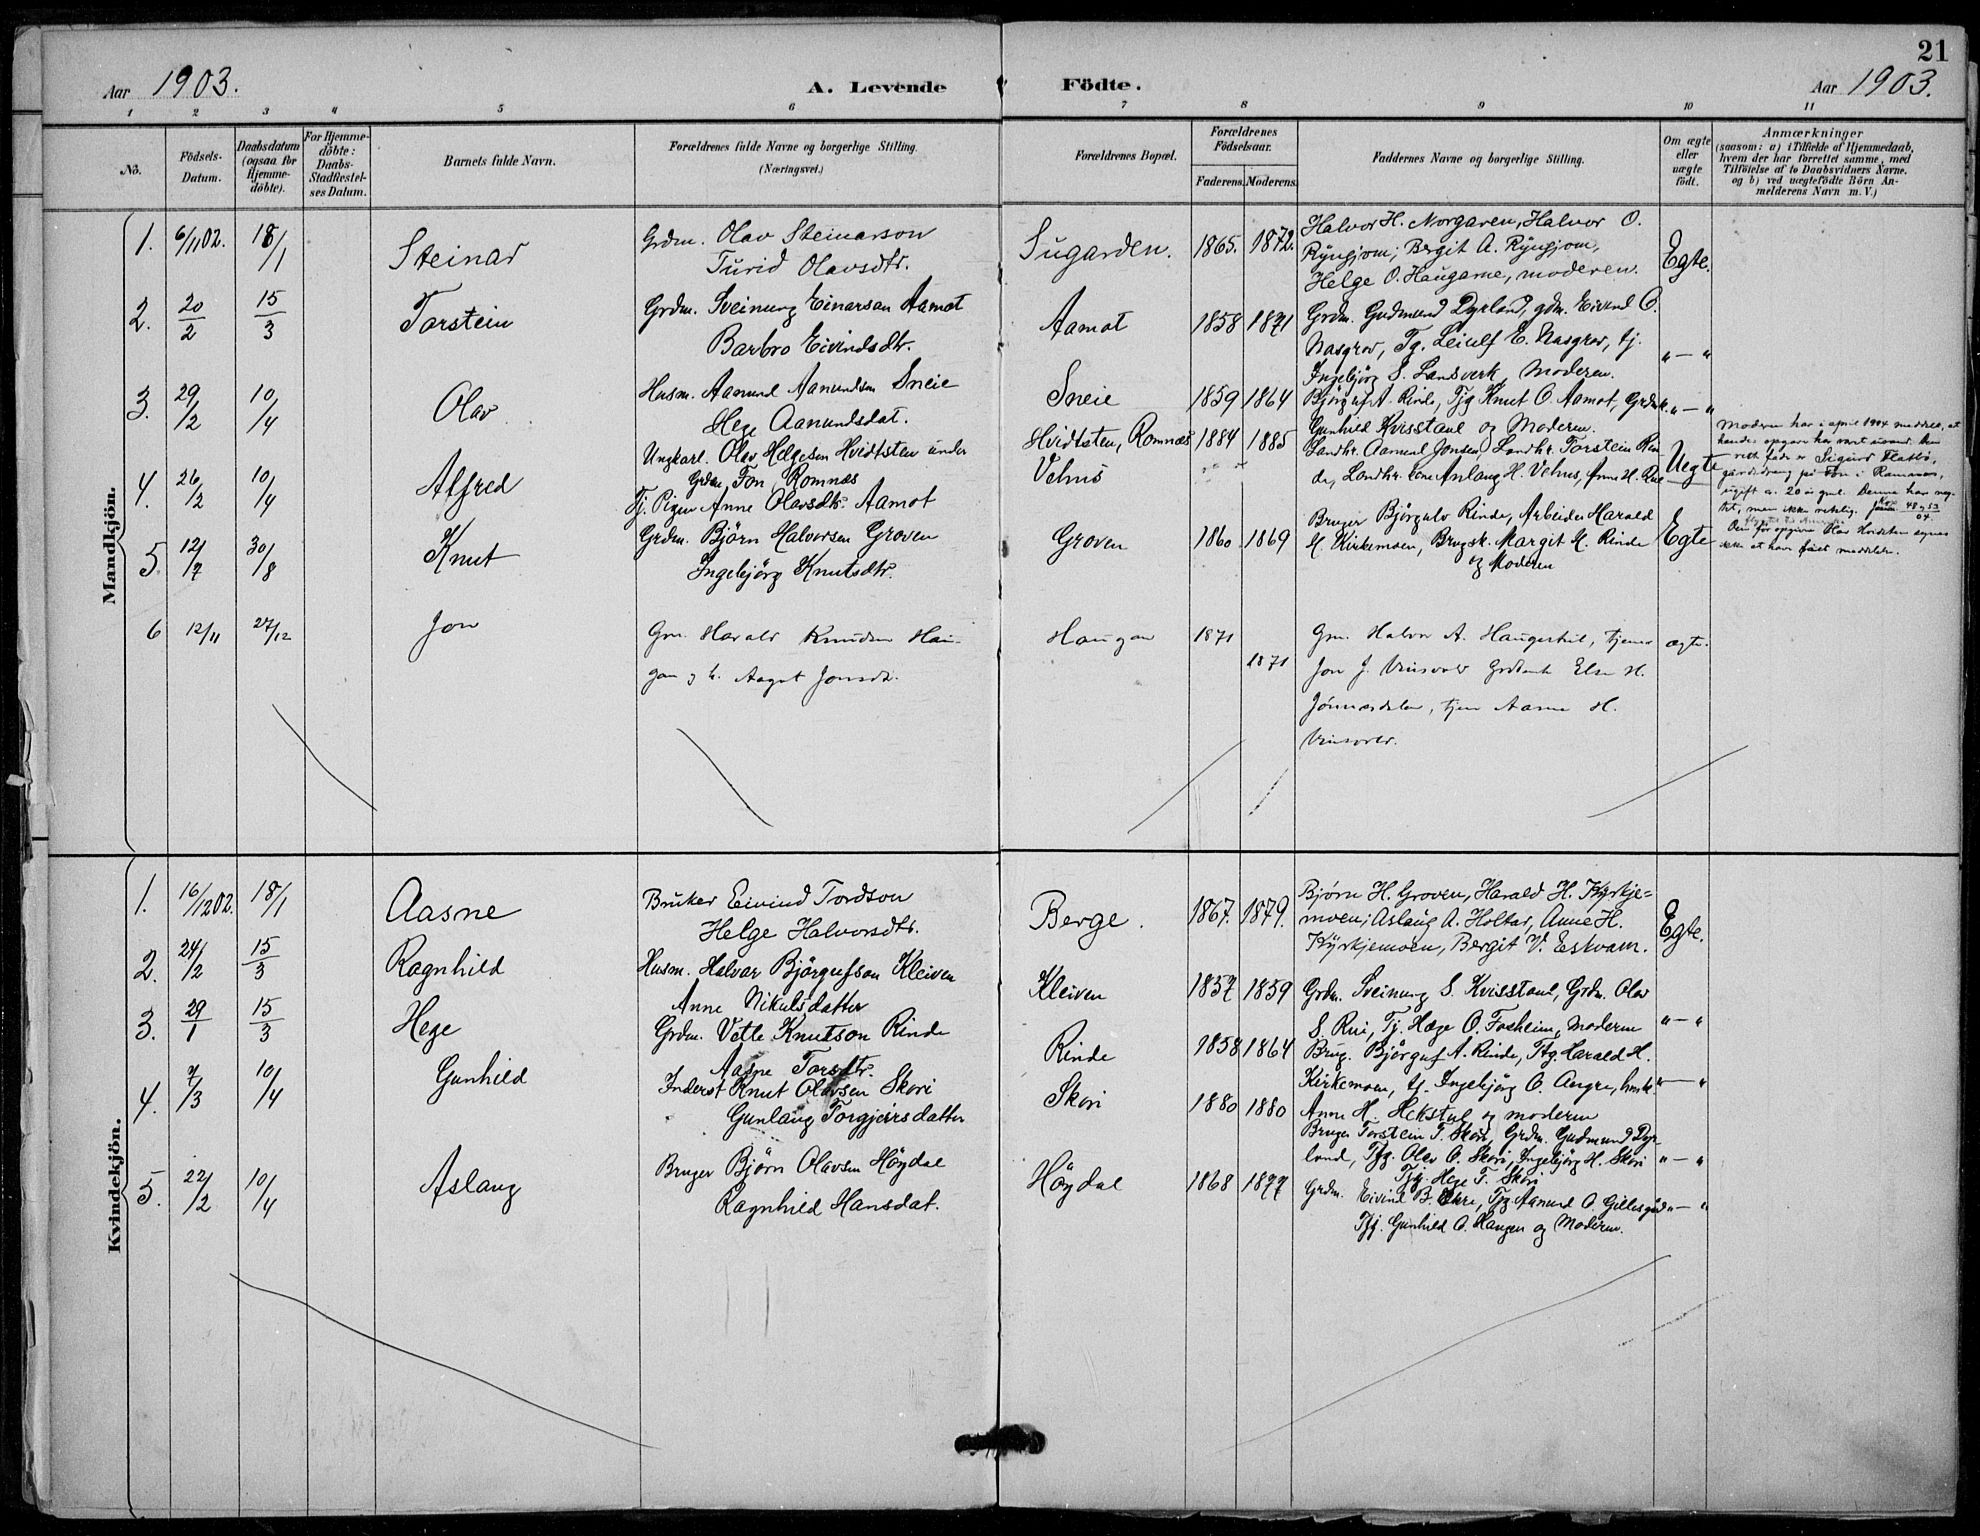 21
Aar 1903. A. Levende Födte. Aar 1903.
1 2 3 4 5 6 7 8 9 10 11
No. Födsels-Datum. Daabsdatum (ogsaa for Hjemme-döbte). For Hjemme-döbte: Daabs-Stadfæstel-ses Datum. Barnets fulde Navn. Forældrenes fulde Navne og borgerlige Stilling. (Næringsvei.) Forældrenes Bopæl. Forældrenes Födselsaar. Faderens. Moderens. Faddernes Navne og borgerlige Stilling. Om ægte eller uægte födt. Anmærkninger (saasom: a) i Tilfælde af Hjemmedaab, hvem der har forrettet samme, med Tilföielse af to Daabsvidners Navne. og b) ved uægtefödte Börn An-melderens Navn m. V.)
Mandkjön.
1. 6/11 02. 18/1 Steinar Grdm. Olav Steinarson
Turid Olavsdtr. Sugarden. 1865. 1872. Halvor H. Norgaren, Halvor O.
Ryngjom; Bergit A. Ryngjom,
Helge O. Haugarne, moderen. Egte.
2. 20/2 15/3 Torstein Grdm. Sveinung Einarsan Aamot
Barbro Eivindsdtr. Aamot 1858 1871 Grdm. Gudmund Dyrland, gdm. Eivind O.
Nasgrav, Tg. Leiulf E. Nasgrav, tj.
Ingebjörg S. Landsverk, Moderen. "—"
3. 29/2 10/4 Olav Husm. Aanund Aanundsen Sneie
Hege Aanundsdat. Sneie 1859 1864 Björguf A. Rinde, Tjg Knut O. Aamot, Grdmk.
Gunhild Kvisstaul og Moderen. "—"
4. 26/2 10/4 Alfred Ungkarl. Olav Helgesen Hvidtsten under
Grdm. Fon Romnæs
Tj. Pigen Anne Olavsdtr. Aamot Hvidtsten, Romnæs
Velnis 1884 1885 Landhr. Aanund Jonsen, Landhr. Torstein Rin
de, Landhr. kone Anlaug H. Velnis, Anne H. Uegte
Moderen har i april 1904
Sigurd Flattö,
ugift
5. 12/7 30/8 Knut Grdm. Björn Halvorsen Groven
Ingebjörg Knutsdtr. Groven 1860 1869 Bruger Björgulv Rinde, Arbeider Harald
H. Kirkemoen, Brugsk. Margit H. Rinde
og Moderen Egte
6 12/11 27/12 Jon Gm. Harald Knudsen Hau-
gan og h. Aagot Jonsdt. Haugan 1871 1871 Gm. Halvor A. Haugestul, tjener
Jon J. Vinsvold Else H.
tjen Aasne H.
Vinsvold. ægte.
Kvindekjön.
1. 16/12 02. 18/1 Aasne Bruker Eivind Tordson
Helge Halvorsdtr. Berge. 1867. 1879. Bjørn H. Groven, Harald H. Kyrkje=
moen; Aslaug A. Holtar, Anne H.
Kyrkjemoen, Bergit V. Eskvam. Egte.
2. 24/2 15/3 Ragnhild Husm. Halvor Björgufson Kleiven
Anne Nikulsdatter Kleiven 1857 1859 Grdm. Sveinung S. Kvisstaul, Grdm. Olav
S. Rui, Tj. Hæge O. Fosheim, Moderen "—"
3. 29/1 15/3 Hege Grdm. Vetle Knutson Rinde
Aasne Torsdtr. Rinde 1858 1864 Brug. Björguf A. Rinde, Tjg Harald H.
Kirkemoen, tj. Ingebjörg O. Angre, husk.
Anne H. Hekstul og moderen "—"
4. 7/3 10/4 Gunhild Inderst Knut Olavsen Skori
Gunlaug Torgjeirsdatter Skori 1880 1880 Bruger Torstein T. Skori, Grdm. Gudmund Dyr-
land, Tjg. Olav O. Skori, Ingebjörg H. Skori
Tjg. Hege T. Skori "—"
5. 22/2 10/4 Aslaug Bruger Björn Olavsen Höydal
Ragnhild Hansdat. Höydal 1868 1877 Grdm. Eivind B. , Tjg. Aanund O. Gillesgård
Tjg. Gunhild O. Haugen og Moderen. "—"